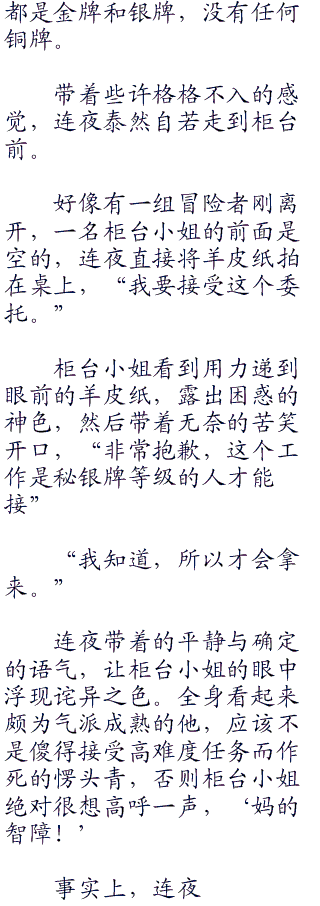 都是金牌和银牌，没有任何
铜牌。
带着些许格格不入的感
觉，连夜泰然自若走到柜台
前。
好像有一组冒险者刚离
开，一名柜台小姐的前面是
空的，连夜直接将羊皮纸拍
在桌上，“我要接受这个委
托。”
柜台小姐看到用力递到
眼前的羊皮纸，露出困惑的
神色，然后带着无奈的苦笑
开口，“非常抱歉，这个工
作是秘银牌等级的人才能
接”
“我知道，所以才会拿
来。”
连夜带着的平静与确定
的语气，让柜台小姐的眼中
浮现诧异之色。全身看起来
颇为气派成熟的他，应该不
是傻得接受高难度任务而作
死的愣头青，否则柜台小姐
绝对很想高呼一声，‘妈的
智障！’
事实上，连夜